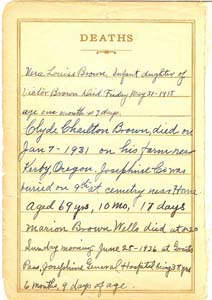 DEATHS
Vera Louise Brown, Infant dughter of
Victor Brown Died Friday May 31-1918
age one month & 7 days.
Clyde Charlton Brown, died on
Jan 7-1931 on his farm near
Kerby, Oregon, Josephine Co was
buried on 9th at cemetry near Home
Aged 69 yrs, 10 mo, 17 days
Marion Brown Wells died at
Sunday morning June 28-1936 at Grants
Pass, Josephine General Hospital being 38 yrs
6 months, 9 days of age.